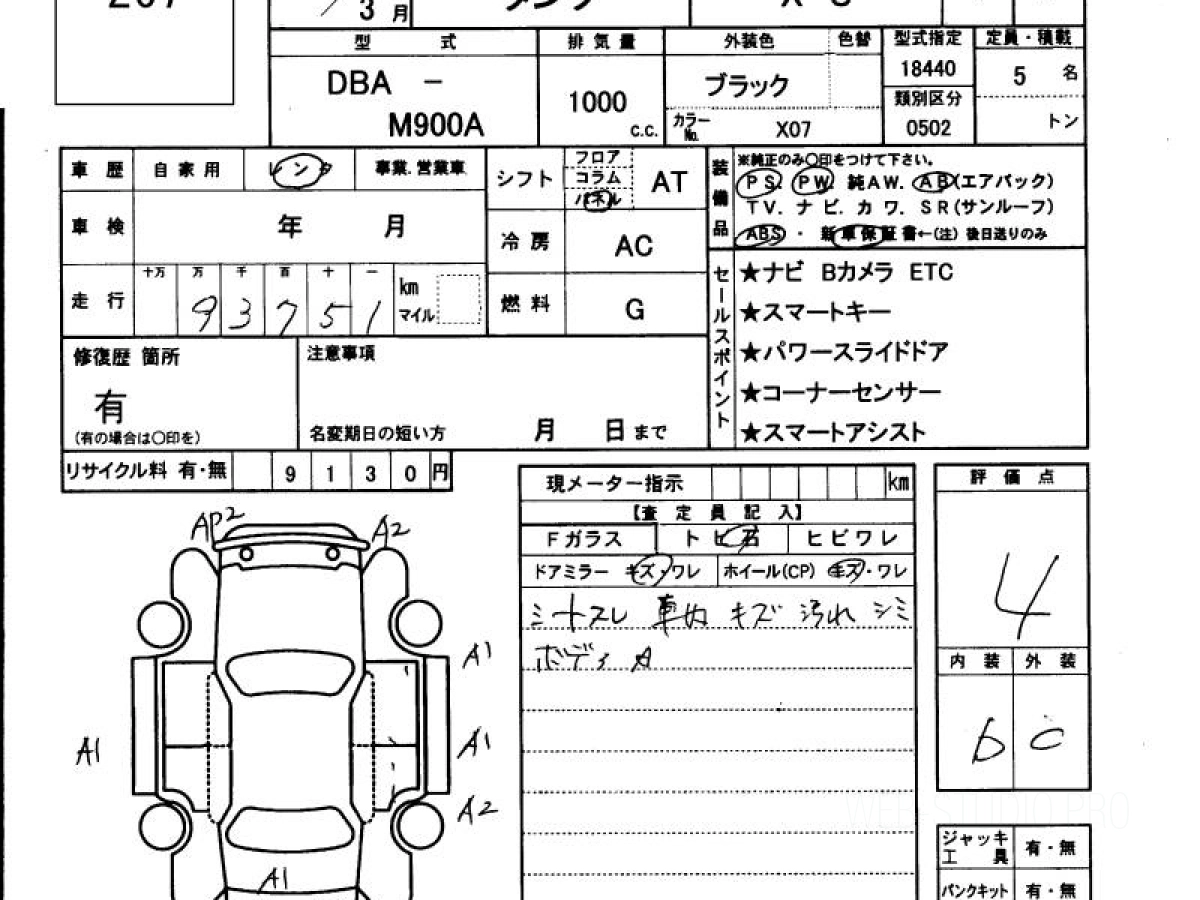 3 月
型 式 排 気 量 外装色 色替 型式指定 定員・積載
DBA － 18440 5 名
M900A 1000 C.C. ブラック 類別区分
カラーNo. X07 0502 トン
車 歴 自 家 用 レンタ 事業.営業車
車 検 年 月
走 行 十万 万 千 百 十 一
9 3 7 5 1 km マイル
シフト フロア コラム パネル AT
冷 房 AC
燃 料 G
装備品 ※純正のみ○印をつけて下さい。
PS. PW. 純AW. AB(エアバック)
TV. ナビ. カワ. SR(サンルーフ)
ABS ・ 新車保証書←(注) 後日送りのみ
セールスポイント
★ナビ Bカメラ ETC
★スマートキー
★パワースライドドア
★コーナーセンサー
★スマートアシスト
修復歴 箇所
有
(有の場合は○印を)
注意事項
名変期日の短い方 月 日 まで
リサイクル料 有・無 9 1 3 0 円
現メーター指示 km
【査 定 員 記 入】
Fガラス トビ石 ヒビワレ
ドアミラー キズ・ワレ ホイール(CP) キズ・ワレ
ミナスレ 車内 キズ 汚れ シミ
ボディ A
評 価 点
4
内 装 外 装
b C
ジャッキ 工具 有・無
パンクキット 有・無
AP2 A2
A1
A1 A1
A2
A1
WEB STUDIO PRO